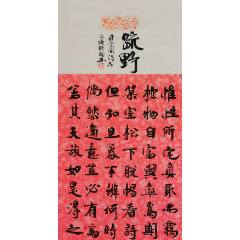 疏野
惟性所宅真取不羈
物自富與率為期
築室松下脫帽看詩
但知旦暮不辨何時
倘然適意豈必有為
若其天放如是得之